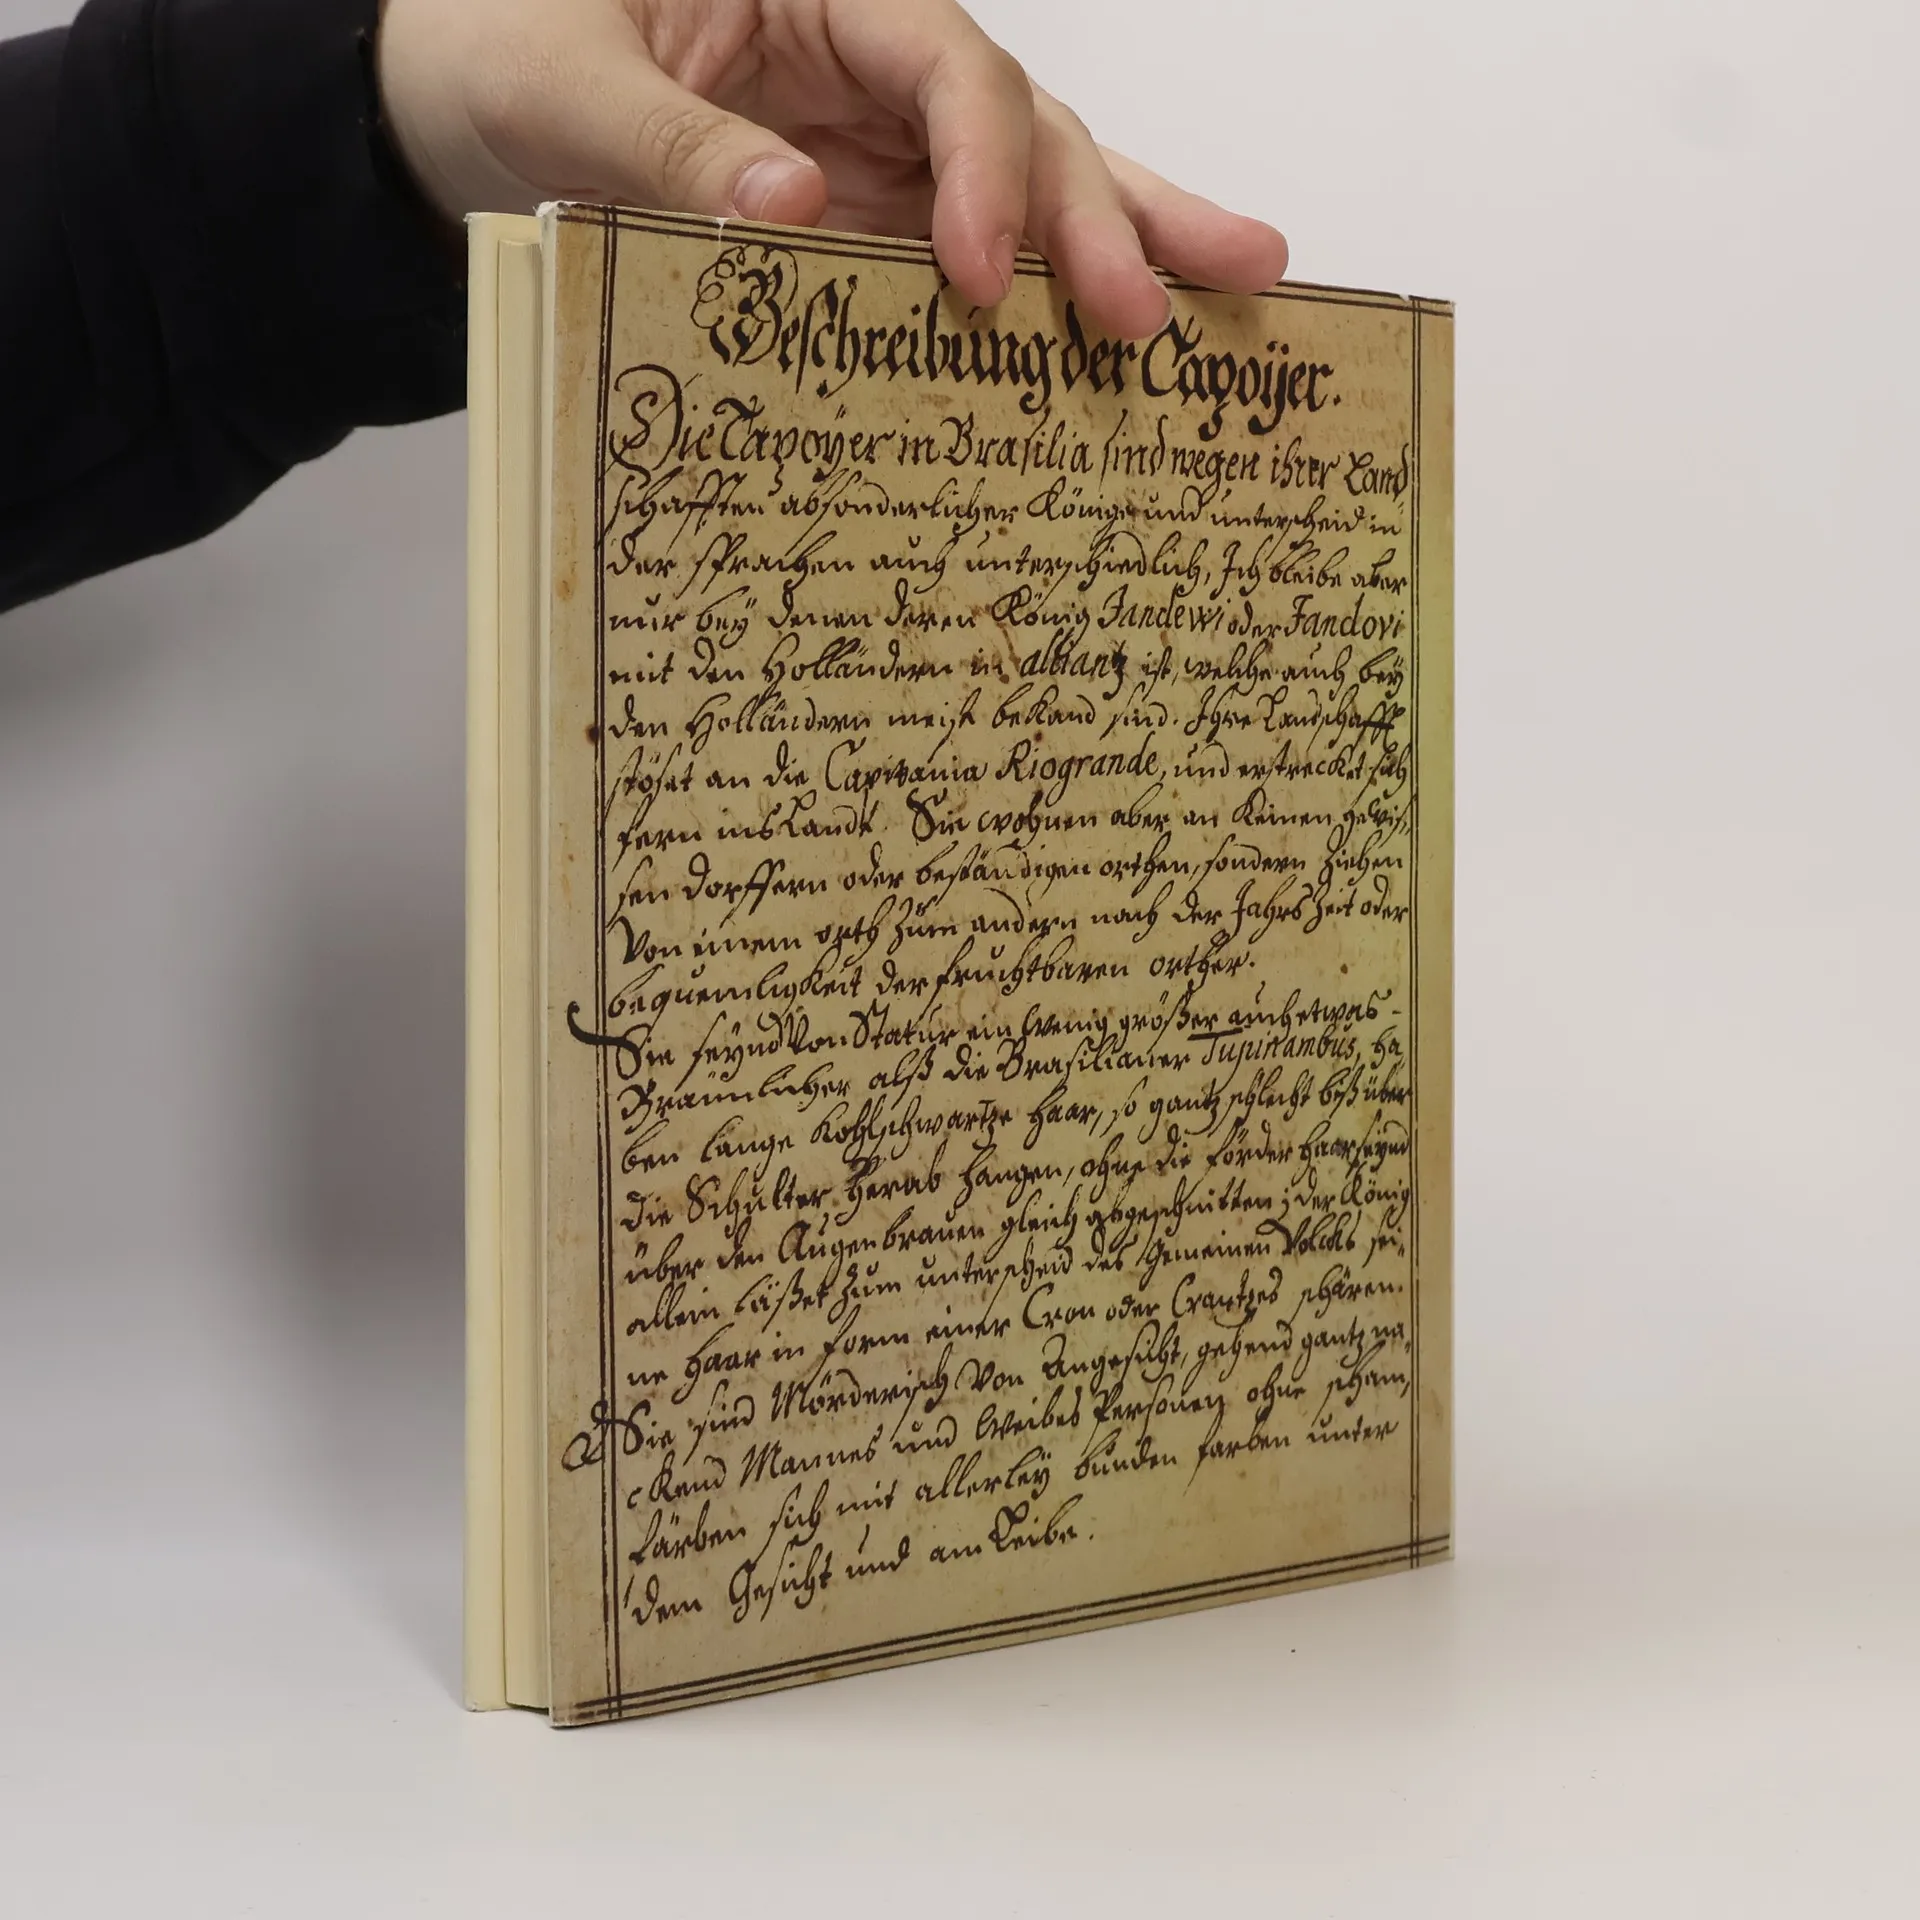 Beschreibung der Tapoÿer.
Die Tapoÿer in Brasilia sind wegen ihrer Land
schafften absonderlicher Könige und unterscheid in
der sprachen auch unterschiedlich, Ich bleibe aber
nur beÿ denen deren König Jandewi oder Jandovi
mit den Holländern in alliantz ist, welche auch beÿ
den Holländern meist bekand sind. Ihre Landschafft
stöset an die Capitania Riogrande, und erstrecket sich
fern ins Landt. Sie wohnen aber an keinen gewis-
sen dorffern oder beständigen orthen, sondern ziehen
Von einem orth zum andern nach der Jahrs Zeit oder
bequemligkeit der fruchtbaren orther.
Sie seÿnd Von Statur ein wenig größer auch etwas -
Bräunlicher alß die Brasilianer Tupinambus, ha
ben lange kohlschwartze haar, so gantz schlecht biß über
die Schulter herab hangen, ohne die förder haar seÿnd
über den Augenbrauen gleich abgeschnitten; der König
allein läßet zum unterscheid des Gemeinen Volcks sei-
ne haar in form einer Cron oder Crantzes schären.
Sie sind Mörderisch Von Angesicht, gehend gantz na-
ckend Mannes und Weibes Personen ohne scham,
färben sich mit allerleÿ bunden farben unter
dem Gesicht und am Leibe.